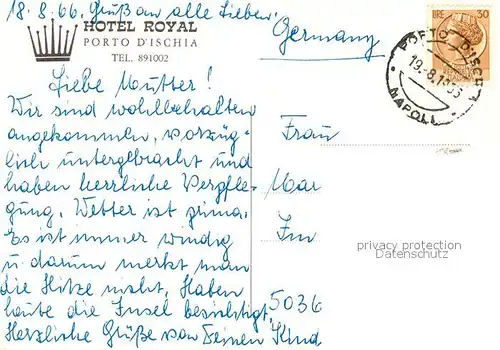 18.8.66. Gruß an alle Lieben.
HOTEL ROYAL
PORTO D'ISCHIA
TEL. 891002
Germany
LIRE 30
PORTO D'ISCHIA
19.-8.1966
NAPOLI
Liebe Mutter!
Wir sind wohlbehalten
angekommen, vorzüg-
lich untergebracht und
haben herrliche Verpfle-
gung. Wetter ist prima.
Es ist immer windig
u. darum merkt man
die Hitze nicht. Haben
heute die Insel besichtigt.
Herzliche Grüße von Deinen Kind
Frau
Mar
Im
5036
privacy protection
Datenschutz